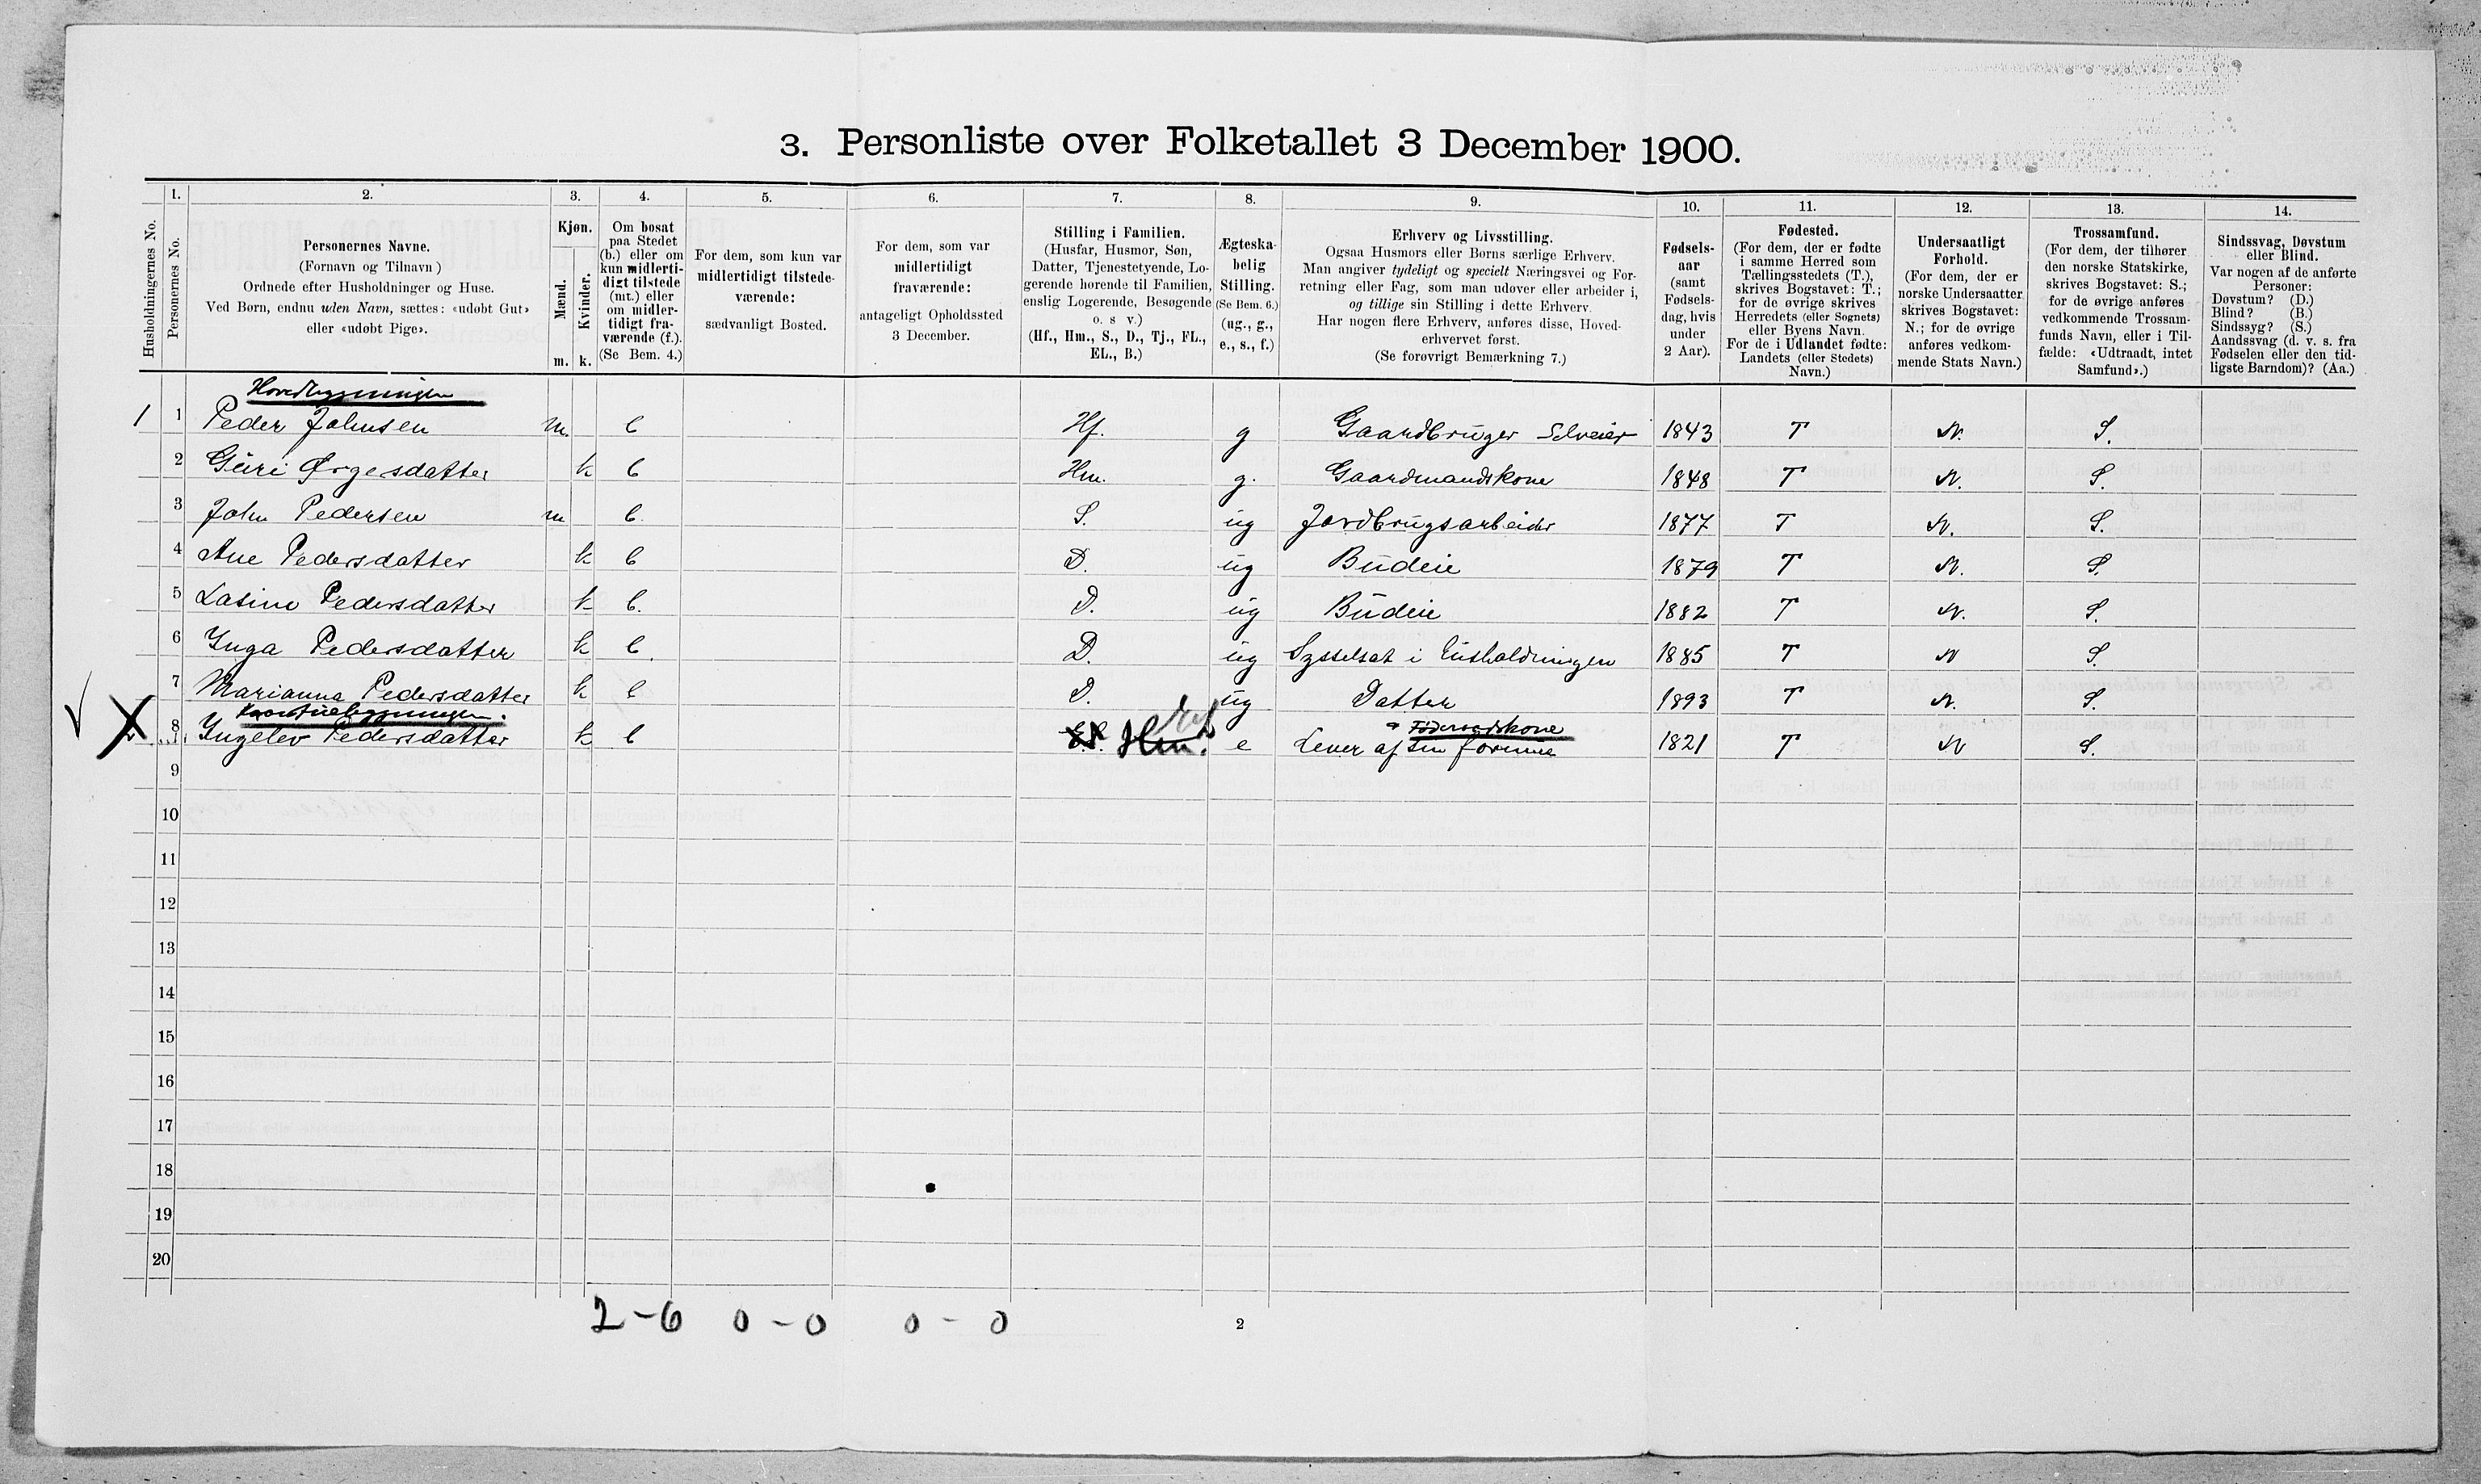 3. Personliste over Folketallet 3 December 1900.
1. 2. 3. 4. 5. 6. 7. 8. 9. 10. 11. 12. 13. 14.
Husholdningernes No.
Personernes No.
Personernes Navne.
(Fornavn og Tilnavn )
Ordnede efter Husholdninger og Huse.
Ved Børn, endnu uden Navn, sættes: «udøbt Gut»
eller «udøbt Pige».
Kjøn.
Mænd.
Kvinder.
m. k.
Om bosat
paa Stedet
(b.) eller om
kun midlerti-
digt tilstede
(mt.) eller
om midler-
tidigt fra-
værende (f.).
(Se Bem. 4.)
For dem, som kun var
midlertidigt tilstede-
værende:
sædvanligt Bosted.
For dem, som var
midlertidigt
fraværende:
antageligt Opholdssted
3 December.
Stilling i Familien.
(Husfar, Husmor, Søn,
Datter, Tjenestetyende, Lo-
gerende hørende til Familien,
enslig Logerende, Besøgende
o. s v.)
(Hf., Hm., S., D., Tj., FL.,
EL., B.)
Ægteska-
belig
Stilling.
(Se Bem. 6.)
(ug., g.,
e., s., f.)
Erhverv og Livsstilling.
Ogsaa Husmors eller Børns særlige Erhverv.
Man angiver tydeligt og specielt Næringsvei og For-
retning eller Fag, som man udøver eller arbeider i,
og tillige sin Stilling i dette Erhverv.
Har nogen flere Erhverv, anføres disse, Hoved-
erhvervet først.
(Se forøvrigt Bemærkning 7.)
Fødsels-
aar
(samt
Fødsels-
dag, hvis
under
2 Aar).
Fødested.
(For dem, der er fødte
i samme Herred som
Tællingsstedets (T.),
skrives Bogstavet: T.;
for de øvrige skrives
Herredets (eller Sognets)
eller Byens Navn.
For de i Udlandet fødte:
Landets (eller Stedets)
Navn.)
Undersaatligt
Forhold.
(For dem, der er
norske Undersaatter
skrives Bogstavet:
N.; for de øvrige
anføres vedkom-
mende Stats Navn.)
Trossamfund.
(For dem, der tilhører
den norske Statskirke,
skrives Bogstavet: S.;
for de øvrige anføres
vedkommende Trossam-
funds Navn, eller i Til-
fælde: «Udtraadt, intet
Samfund».)
Sindssvag, Døvstum
eller Blind.
Var nogen af de anførte
Personer:
Døvstum? (D.)
Blind? (B.)
Sindssyg? (S.)
Aandssvag (d. v. s. fra
Fødselen eller den tid-
ligste Barndom)? (Aa.)
Hovedbygningen
1 1 Peder Johnsen m. b Hf. g Gaardbruger Selveier 1843 T N. S.
2 Guri Ørgersdatter k b Hm. g. Gaardmandskone 1848 T N. S.
3 John Pedersen m b. S. ug Jordbrugsarbeider 1877 T N. S.
4 Ane Pedersdatter k b D. ug Budeie 1879 T N. S.
5 Lasine Pedersdatter k b. D. ug Budeie 1882 T N. S.
6 Inga Pedersdatter k b. D. ug Sysselsat i husholdningen 1885 T N S.
7 Marianna Pedersdatter k b D. ug Datter 1893 T N. S.
Føderaadskone
8 Ingelev Pedersdatter k b Hm. e Lever af sin formue 1821 T N S.
9
10
11
12
13
14
15
16
17
18
19
20
2-6 0-0 0-0
2